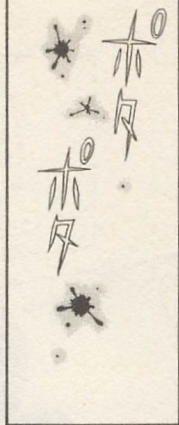 ポタ
ポタ